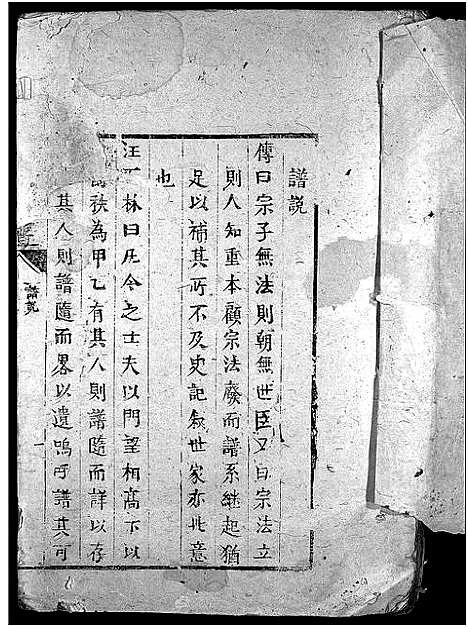 譜說
傳曰宗子無法則朝無世臣又曰宗法立
則人知重本顧宗法廢而譜系継起猶
足以補其所不及史記叙世家亦此意
也
汪 林曰凡今之士夫以門望相高下以
秩為甲乙有其人則譜隨而詳以存
其人則譜隨而畧以遺嗚呼譜其可
譜說